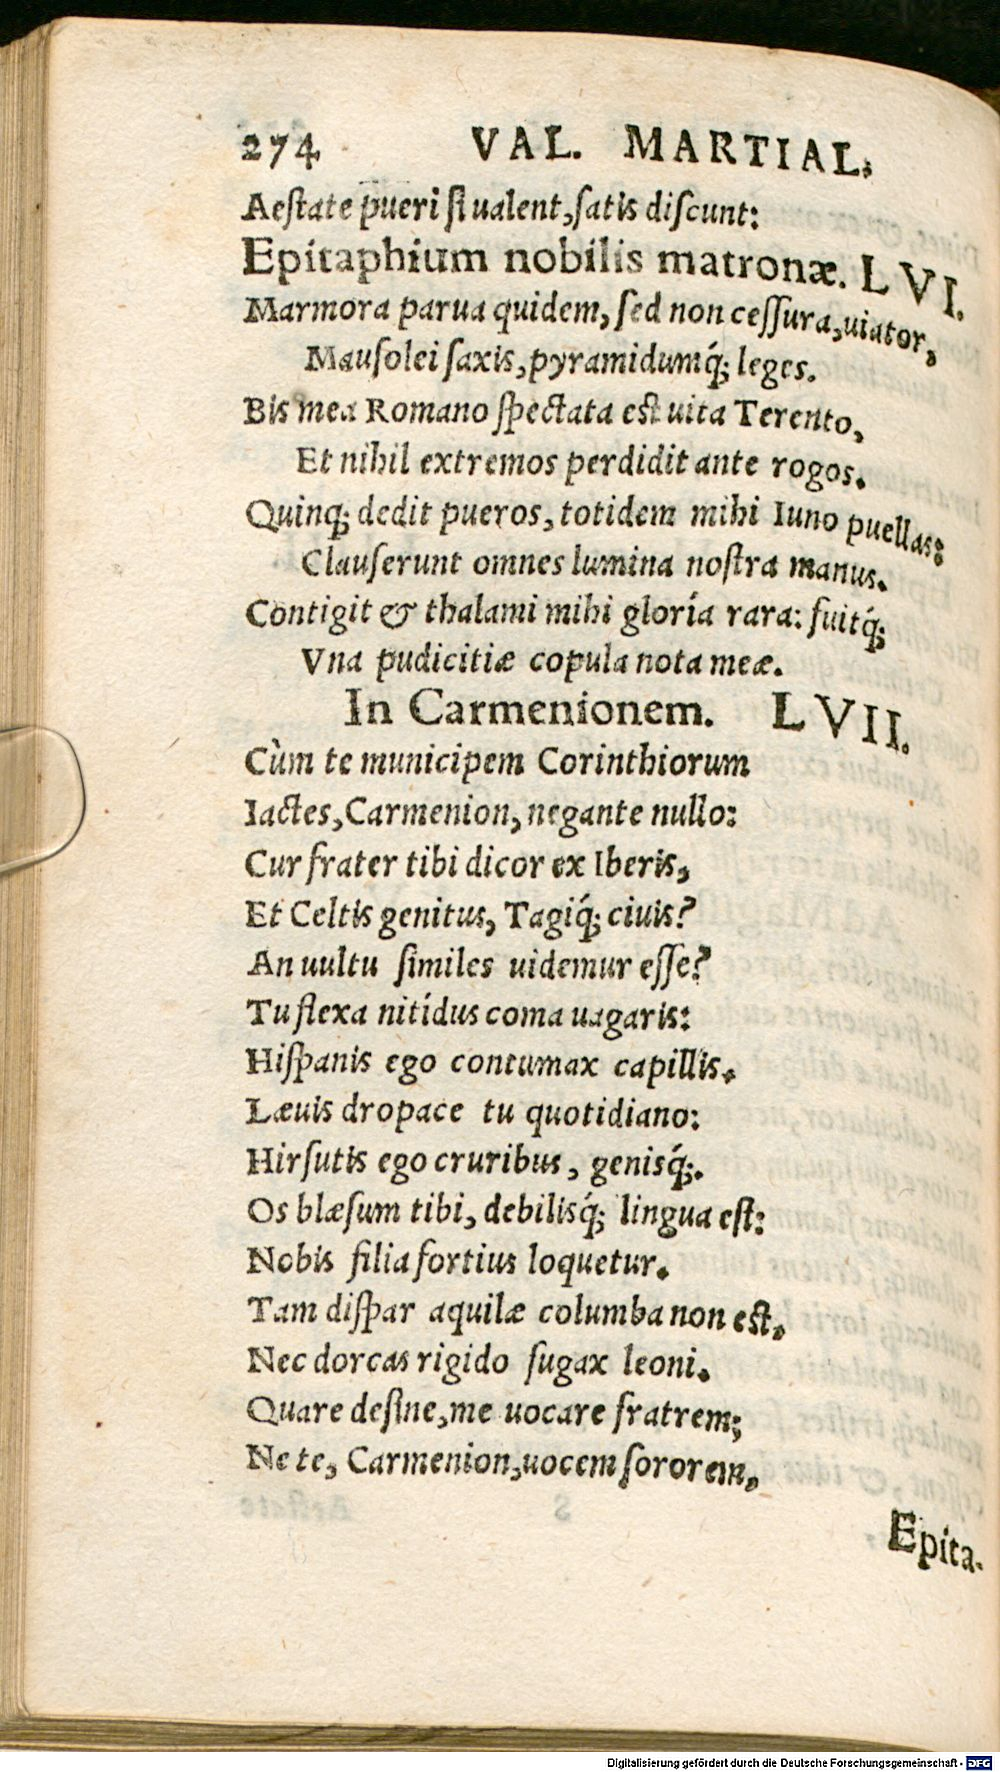 274 VAL. MARTIAL.
Aeſtate pueri ſi ualent, ſatis diſcunt:
Epitaphium nobilis matronæ. LVI.
Marmora parua quidem, ſed non ceſſura, uiator,
Mauſolei ſaxis, pyramidumq́; leges.
Bis mea Romano ſpectata eſt uita Terento,
Et nihil extremos perdidit ante rogos.
Quinq; dedit pueros, totidem mihi Iuno puellas:
Clauſerunt omnes lumina noſtra manus.
Contigit & thalami mihi gloría rara: fuitq́;
Vna pudicitiæ copula nota meæ.
In Carmenionem. LVII.
Cùm te municipem Corinthiorum
Iactes, Carmenion, negante nullo:
Cur frater tibi dicor ex Iberis,
Et Celtis genitus, Tagiq́; ciuis?
An uultu ſimiles uidemur eſſe?
Tu flexa nitídus coma uagaris:
Hiſpanis ego contumax capillis.
Læuis dropace tu quotidiano:
Hirſutis ego cruribus, genisq́;.
Os blæſum tibi, debilisq́; lingua eſt:
Nobis filia fortius loquetur.
Tam diſpar aquilæ columba non eſt,
Nec dorcas rigido fugax leoni.
Quare deſine, me uocare fratrem;
Ne te, Carmenion, uocem ſororem,
Epita-
Digitalisierung gefördert durch die Deutsche Forschungsgemeinschaft - DFG